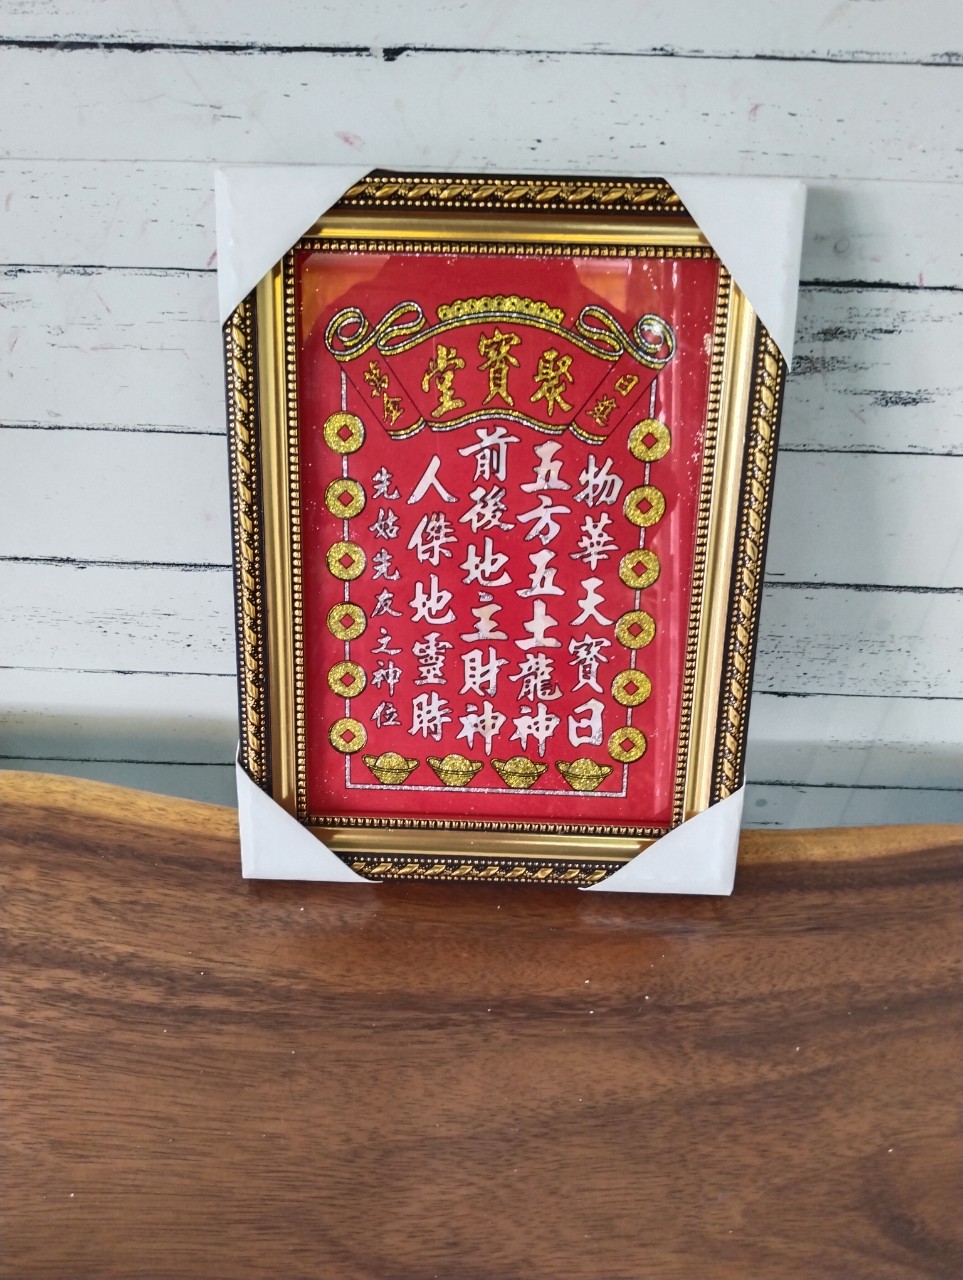 日進
聚寶堂
萬金
物華天寶日
五方五土龍神
前後地主財神
人傑地靈時
先姑先友之神位